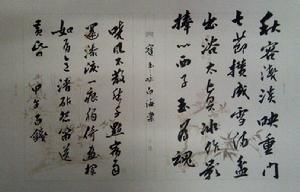 秋容淺淡映重門
七節攢成雪滿盆
出浴太真冰作影
捧心西子玉為魂
寶玉咏白海棠
曉風不散愁千點宿雨
還添淚一痕獨倚畫欄
如有意清砧怨笛送
黃昏 甲午